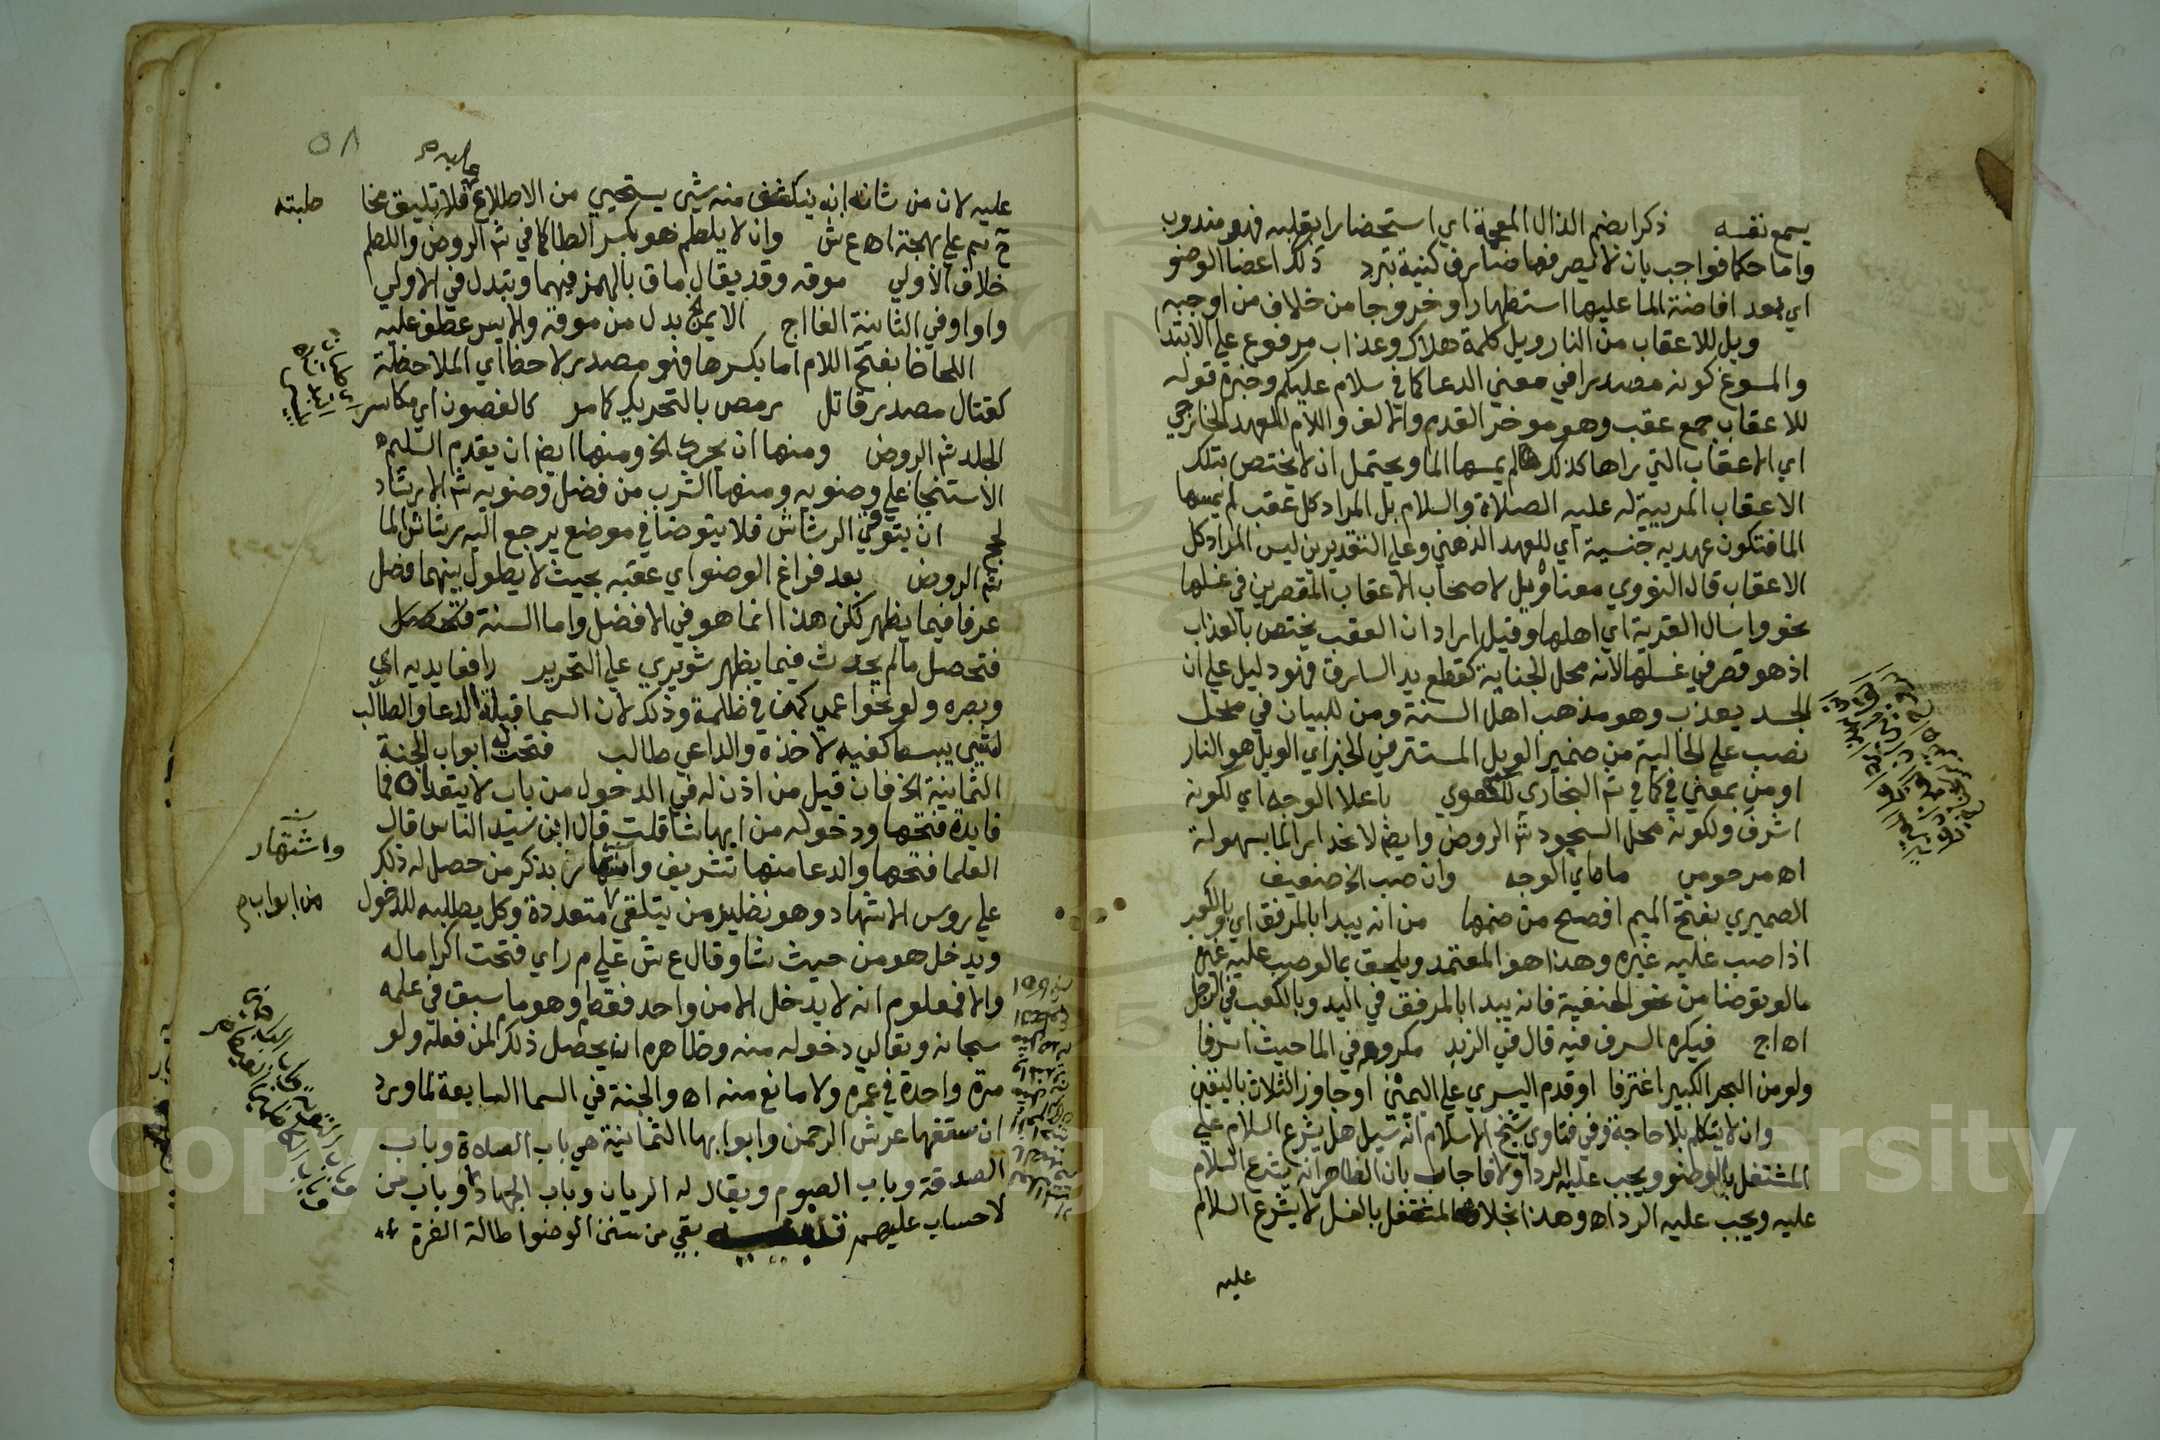 يسمع نفسه ذكرا بضم الذال المعجمة اي استحضارا بقلبه فهو مندوب
واما حكما فواجب بان لا يصرفها صارف كنية تبرد ذلك اعضا الوضو
اي بعد افاضة الما عليها استظهارا وخروجا من خلاف من اوجبه
ويل للاعقاب من النار ويل كلمة هلاك وعذاب مرفوع علي الابتدا
والمسوغ كونه مصدرا في معني الدعا كما في سلام عليكم وخبره قوله
للاعقاب جمع عقب وهو موخر القدم والالف واللام للعهد الخارجي
اي الاعقاب التي راها كذلك لم يمسها الما ويحتمل ان لا يختص بتلك
الاعقاب المريية له عليه الصلاة والسلام بل المراد كل عقب لم يمسها
الما فتكون عهدية جنسية اي للعهد الذهني وعلي التقديرين ليس المراد كل
الاعقاب قال النووي معناه ويل لاصحاب الاعقاب المقصرين في غسلها
نحو واسال القرية اي اهلها وقيل اراد ان العقب يختص بالعذاب
اذ هو قصر في غسلها لانه محل الجناية كقطع يد السارق فهو دليل علي ان
الجسد يعذب وهو مذهب اهل السنة ومن للبيان في محل
نصب علي الحالية من ضمير الويل المستتر في الخبر اي الويل هو النار
او من بمعني في كما في شم البخاري باعلا الوجه اي لكونه
اشرف ولكونه محل السجود شم الروض وايضا لانحدار الما بسهولة
اه مرحومي ماماي الوجه وان صب الخ ضعيف
الصميري بفتح الميم افصح من ضمها من انه يبدا بالمرفق اي وبالكعب
اذا صب عليه غيره وهذا هو المعتمد ويلحق بمالو صب عليه غيره
مالو توضا من نحو الحنفية فانه يبدا بالمرفق في اليد وبالكعب في الرجل
اه اج فيكره السرف فيه قال في الزبد مكروهه في الما حيث اسرفا
ولو من البحر الكبير اغترفا او قدم اليسري علي اليمني او جاوز الثلاث باليقين
وان لا يتكلم بلا حاجة وفي فتاوي شيخ الاسلام انه سيل هل يشرع السلام علي
المشتغل بالوضو ويجب عليه الرد او لا فاجاب بان الظاهر انه يشرع السلام
عليه ويجب عليه الرد اه وهذا بخلاف المشتغل بالغسل لا يشرع السلام
عليه
٥٨
عليه لان من شانه انه ينكشف منه شي يستحيي من الاطلاع عليه فلا تليق مخا طبته
ح سم علي بهجة اه ع ش وان لا يلطم هو بكسر الطا كما في شم الروض واللطم
خلاف الاولي موقه وقد يقال ماق بالهمز فيهما وتبدل في الاولي
واوا وفي الثانية الفا اج الايمن بدل من موقه والايسر عطف عليه
اللحاظ بفتح اللام اما بكسرها فهو مصدر لاحظ اي الملاحظة
كقتال مصدر قاتل رمص بالتحريك كما مر كالغصون اي مكاسر
الجلد شم الروض ومنها ان يحرك الخ ومنها ايضا ان يقدم السليم
الاستنجا علي وضويه ومنها الشرب من فضل وضويه شم الارشاد
ان يتوقي الرشاش فلا يتوضا في موضع يرجع اليه رشاش الما
شم الروض بعد فراغ الوضو اي عقبه بحيث لا يطول بينهما فصل
عرفا فيما يظهر لكن هذا انما هو في الافضل واما السنة
فتحصل مالم يحدث فيما يظهر شوبري علي التحرير رافعا يديه اي
وبصره ولو نحو اعمي كمن في ظلمة وذلك لان السما قبلة الدعا والطالب
لشي يبسط كفيه لاخذه والداعي طالب فتحت له ابواب الجنة
الثمانية الخ فان قيل من اذن له في الدخول من باب لا يتعداه فما
فايدة فتحها ودخوله من ايها شا قلت قال ابن سيد الناس قال
العلما فتحها والدعا منها تشريف واشتهار بذكر من حصل له ذلك
علي روس الاشهاد وهو نظير من يتلقي من ابواب متعددة وكل يطلبه للدخول
ويدخل هو من حيث شا وقال ع ش علي م ر اي فتحت اكراما له
والا فمعلوم انه لا يدخل الا من واحد فقط وهو ما سبق في علمه
سبحانه وتعالي دخوله منه وظاهره انه يحصل ذلك لمن فعله ولو
مرة واحدة في عمره ولا مانع منه اه والجنة في السما السابعة لما ورد
ان سقفها عرش الرحمن وابوابها الثمانية هي باب الصلاة وباب
الصدقة وباب الصوم ويقال له الريان وباب الجهاد وباب من
لا حساب عليهم بقي من سنن الوضو اطالة الغرة
واشتهار
من ابواب
Copyright © King Saud University